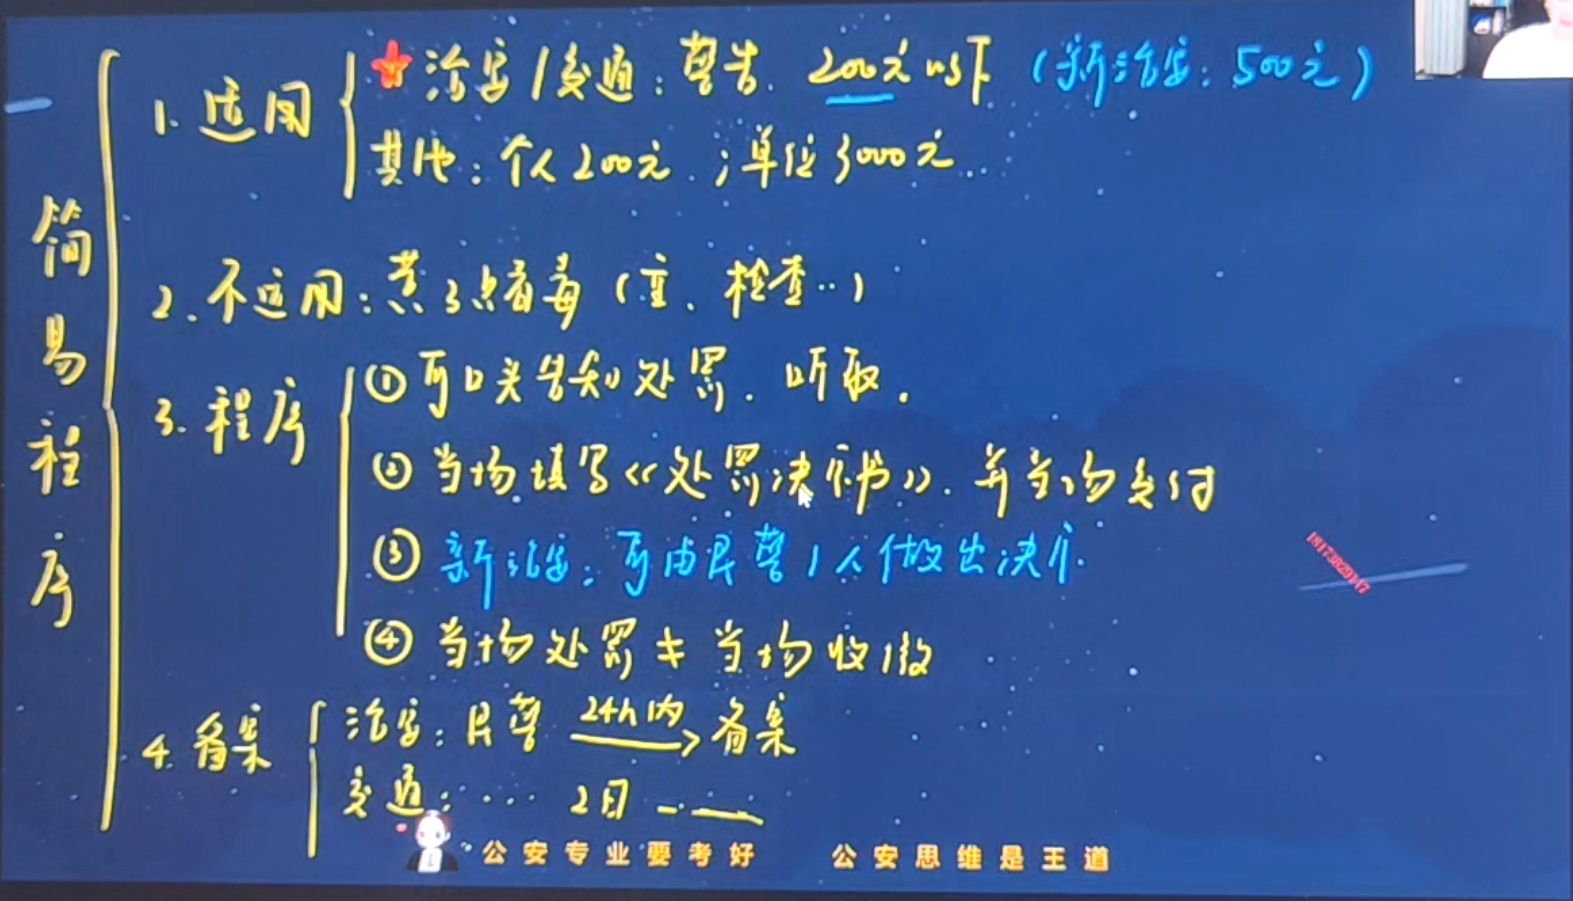 简易程序
1.适用
★治安/交通:警告.200元以下(新治安:500元)
其他:个人200元.;单位3000元..
2.不适用:黄3点看毒(主、检查..)
3.程序
①可口头告知处罚.听取.
②当场填写《处罚决定书》.并当场交付
③新治安:可由民警1人做出决定.
④当场处罚≠当场收缴
4.备案
治安:民警 24h内→备案
交通:... 2日 —.——
公安专业要考好 公安思维是王道
18173829147